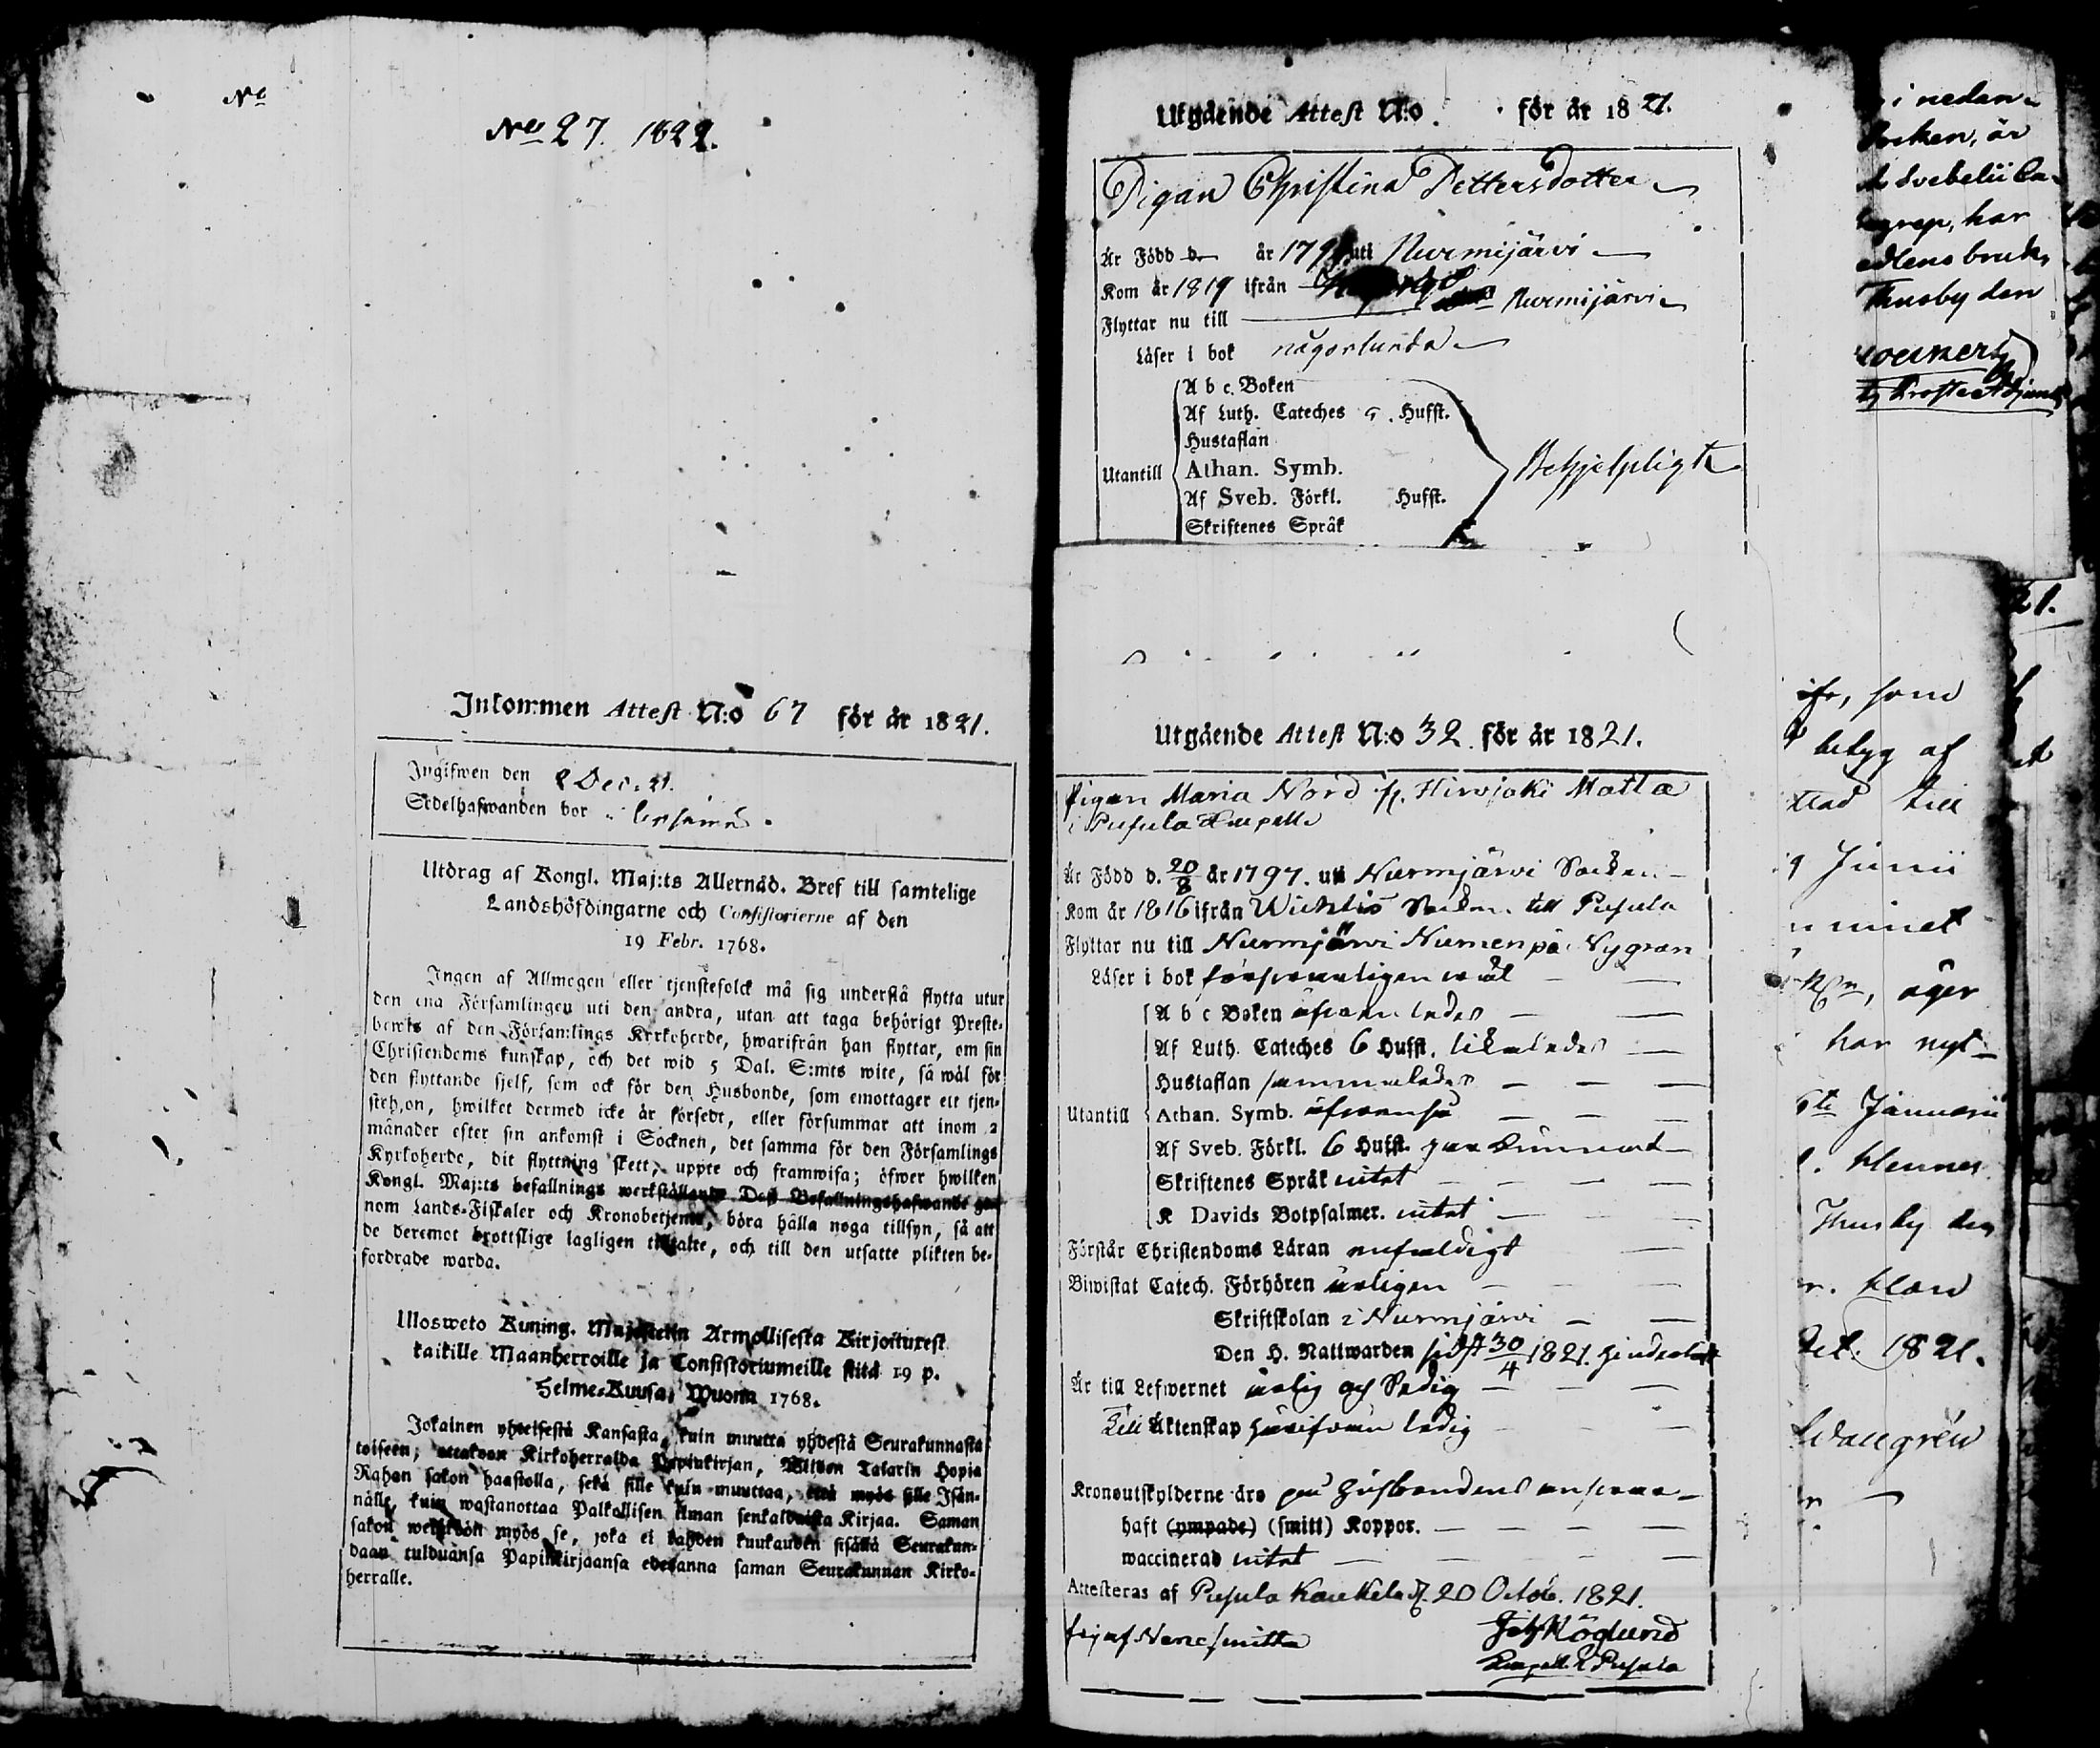 No
No 27. 1822.
Inkommen Attest N:o 67 för år 1821.
Ingifwen den 8 Dec. 21.
Sedelhafwanden bor
Utdrag af Kongl. Maj:ts Allernåd. Bref till samtelige
Landshöfdingarne och Consistorierne af den
19 Febr. 1768.
Ingen af Allmogen eller tjenstefolck må sig understå flytta utur
den ena Församlingen uti den andra, utan att taga behörigt Preste-
bewis af den Församlings Kyrkoherde, hwarifrån han flyttar, om sin
Christendoms kunskap, och det wid 5 Dal. S:mts wite, så wäl för
den flyttande sjelf, som ock för den Husbonde, som emottager ett tjen-
stehjon, hwilket dermed icke är försedt, eller försummar att inom 2
månader efter sin ankomst i Socknen, det samma för den Församlings
Kyrkoherde, dit flyttning skett, uppte och framwisa; öfwer hwilken
Kongl. Maj:ts befallnings werkställande Dess Befallningshafwande ge-
nom Lands-Fiskaler och Kronobetjente, böra hålla noga tillsyn, så att
de deremot brottslige lagligen tiltalte, och till den utsatte plikten be-
fordrade warda.
Ulosweto Kuning. Majestetin Armollisesta Kirjoiturest
kaikille Maanherroille ja Consistoriumeille siitä 19 p.
Helme-Kuusa, Wuonna 1768.
Jokainen yhteisestä Kansasta, kuin muutta yhdestä Seurakunnasta
toiseen; ottakoon Kirkoherralda Papinkirjan, Wiiden Talarin Hopia
Rahan sakon haastolla, sekä sille kuin muuttaa, että myös sille Isän-
nälle, kuin wastanottaa Palkollisen ilman senkaldaista Kirjaa. Saman
sakon wetäköön myös se, joka ei kahden kuukauden sisällä Seurakun-
daan tulduansa Papinkirjaansa edesanna saman Seurakunnan Kirko-
herralle.
Utgående Attest N:o. för år 1821.
Pigan Christina Pettersdotter
Är Född d. år 179 uti Nurmijärvi
Kom år 1819 ifrån
Flyttar nu till Nurmijärvi
Läser i bok någorlunda
A b c. Boken
Af Luth. Cateches 5. Hufst.
Hustaflan
Utantill Athan. Symb. Behjelpligt
Af Sveb. Förkl. Hufst.
Skriftenes Språk
Utgående Attest N:o 32. för år 1821.
Pigan Maria Nord fr. Hirvjoki Matla
i Pusula Kapell
Är Född d. 20/8 år 1797. uti Nurmjärvi Socken
Kom år 1816 ifrån Wichtis Socken till Pusula
Flyttar nu till Nurmjärvi Numenpä Nygran
Läser i bok försvarligen wäl
A b c Boken äfvenledes
Af Luth. Cateches 6 Hufst. likaledes
Hustaflan sammaledes
Utantill Athan. Symb. äfvenså
Af Sveb. Förkl. 6 Hufst.
Skriftenes Språk intet
K Davids Botpsalmer. intet
Förstår Christendoms Läran enfaldigt
Biwistat Catech. Förhören årligen
Skriftskolan i Nurmjärvi
Den H. Nattwarden sidst 30/4 1821.
Är till Lefwernet ärlig och Sedig
Till Äktenskap härifrån ledig
Kronoutskylderne äro på Husbondens ansvar
haft (ympade) (smitt) Koppor.
waccinerad intet
Attesteras af Pusula Kaukela d. 20 Octob. 1821.
Höglund
Kapell. i Pusula
i nedan-
Socken, är
Svebelii Ca-
har
bruk,
Thusby den
som
betyg af
till
Junii
äger
har nyt-
6te Januarii
Hennes
Thusby den
1821.